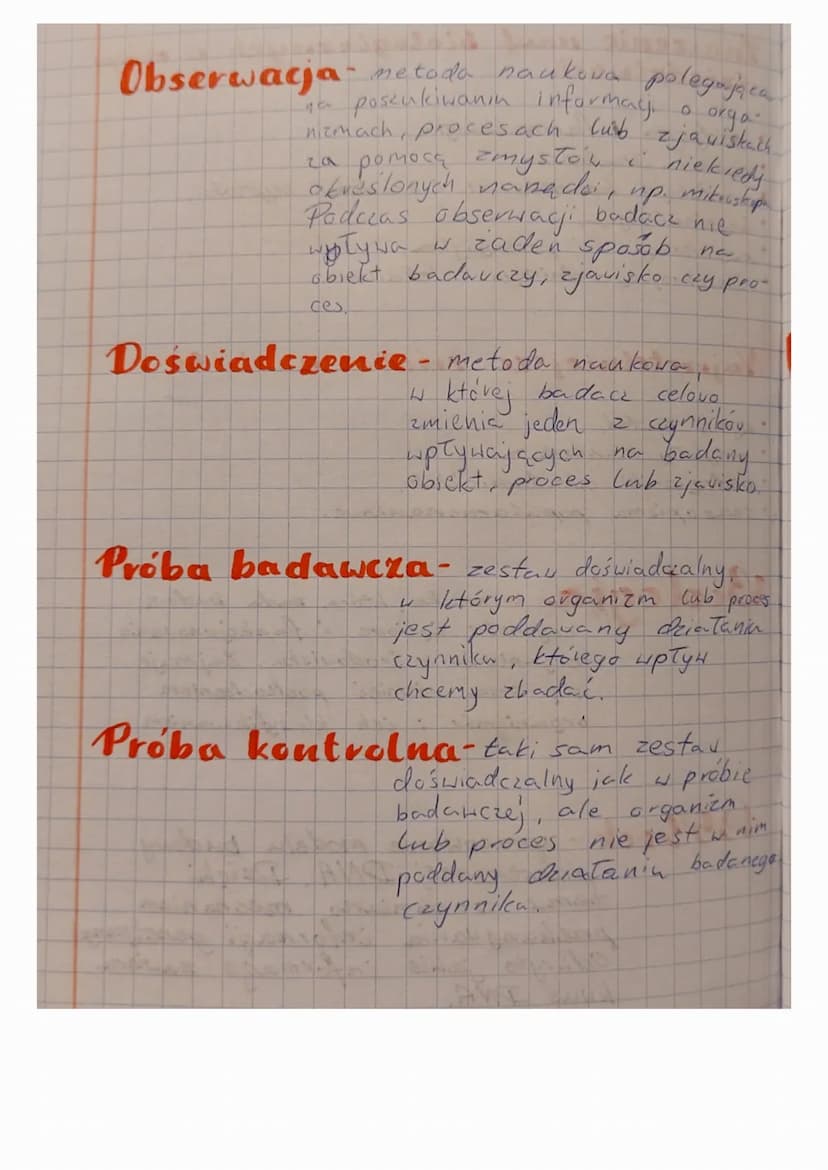 Obserwacja - metoda naukowa polegająca
na poszukiwaniu informacji o orga-
nizmach, procesach lub zjawiskach
za pomocą zmysłów i niekiedy
określonych narzędzi, np. mikroskopu
Podczas obserwacji badacz nie
wpływa w żaden sposób na
obiekt badawczy, zjawisko czy pro-
ces.
Doświadczenie - metoda naukowa,
w której badacz celowo
zmienia jeden z czynników
wpływających na badany
obiekt, proces lub zjawisko.
Próba badawcza - zestaw doświadczalny,
w którym organizm lub proces
jest poddawany działaniu
czynnika, którego wpływ
chcemy zbadać.
Próba kontrolna - taki sam zestaw
doświadczalny jak w próbie
badawczej, ale organizm
lub proces nie jest w nim
poddany działaniu badanego
czynnika.